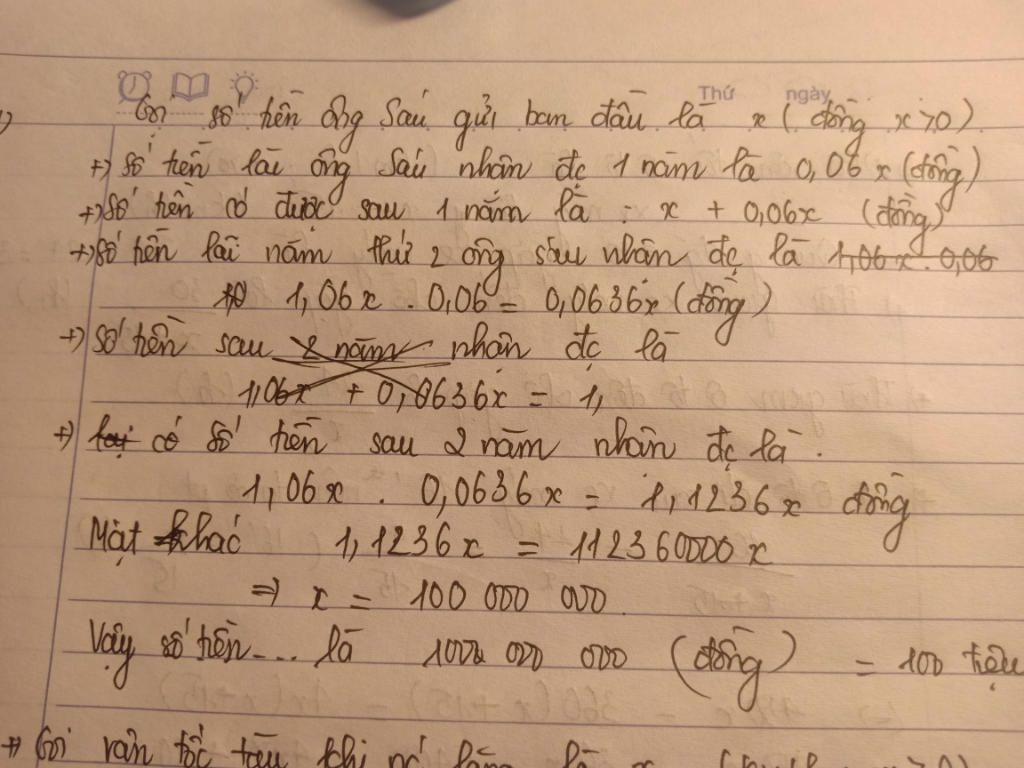 Thứ ngày
Gọi số tiền ông Sáu gửi ban đầu là x ( đồng x>0)
+) số tiền lãi ông Sáu nhận đc 1 năm là 0,06x (đồng)
+) Số tiền có được sau 1 năm là : x + 0,06x (đồng)
+) số tiền lãi năm thứ 2 ông sáu nhân đc là 1,06x . 0,06
1,06x . 0,06 = 0,0636x (đồng)
+) số tiền sau 2 năm nhận đc là
1,06x + 0,0636x = 1,
+) có số tiền sau 2 năm nhân đc là .
1,06x . 0,0636x = 1,1236x đồng
Mặt khác 1,1236x = 112360000 x
⇒ x = 100 000 000.
Vậy số tiền... là 100 000 000 (đồng) = 100 triệu
+) Gọi vận tốc tàu khi là x